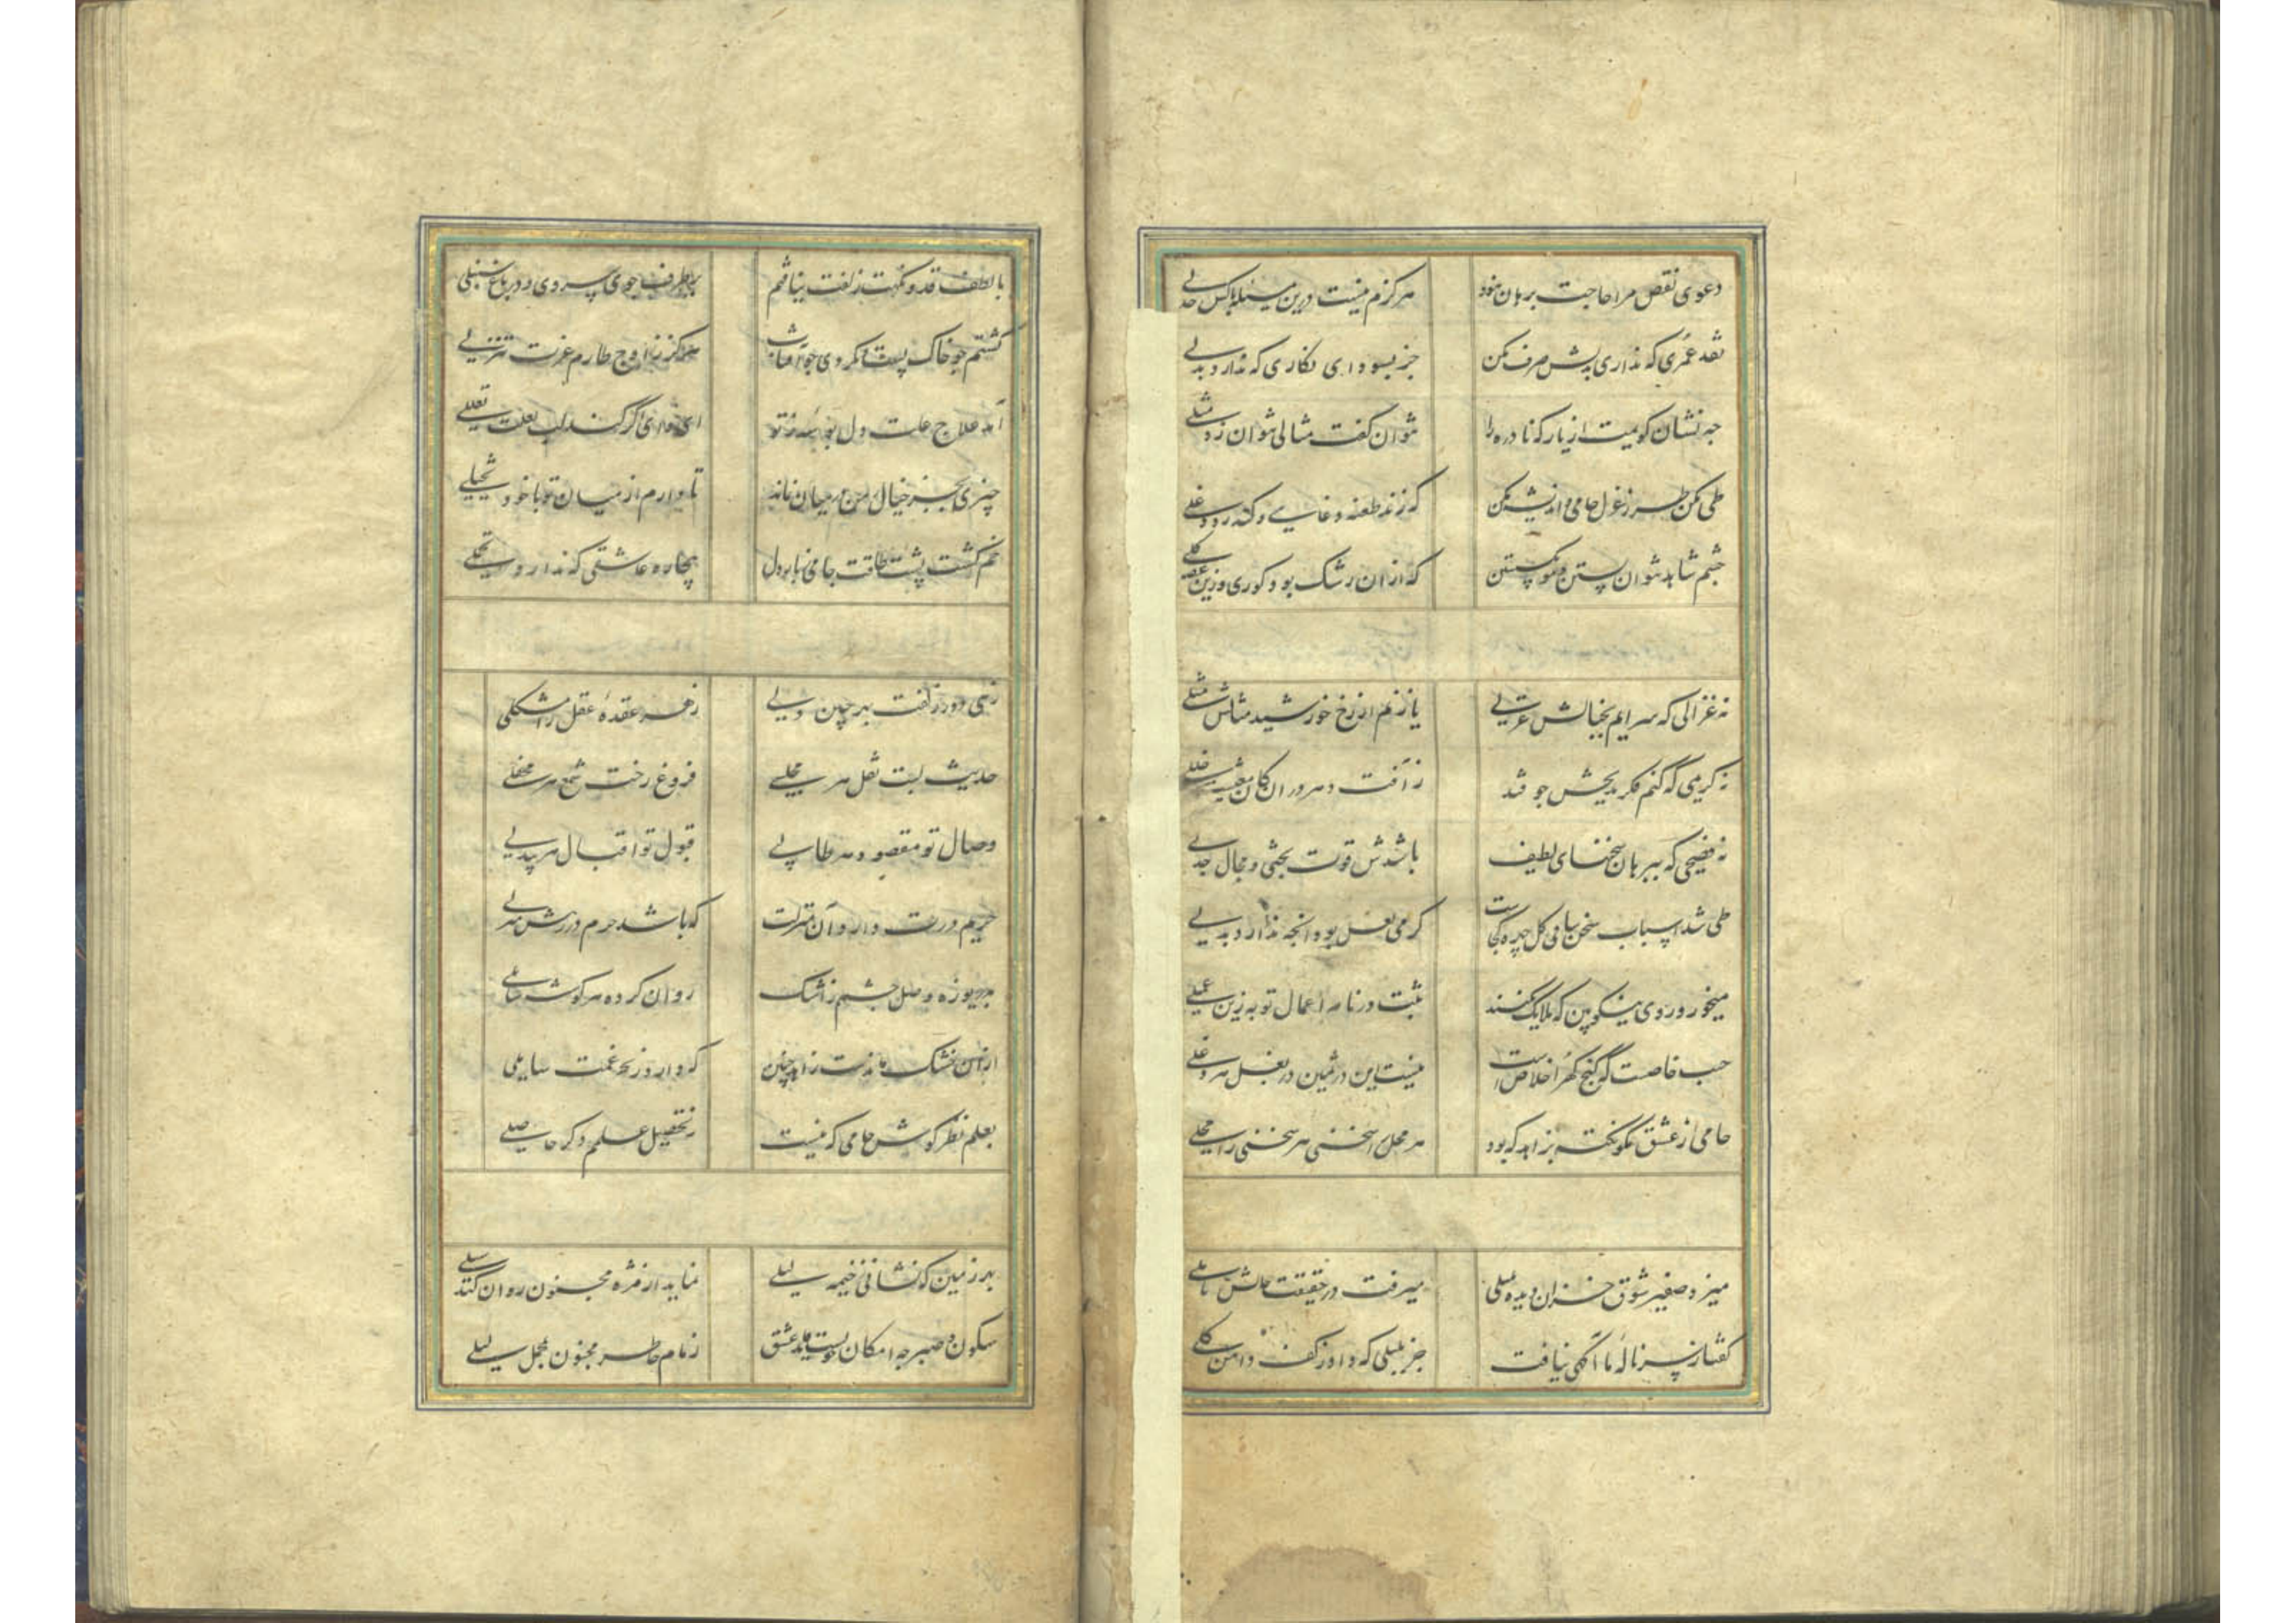 دعوی نقص مرا حاجت برهان نبود هرگزم نیست درین مسئله باکس جدلی
نقد عمری که نداری بدلش صرف مکن جز بسودای نگاری که ندارد بدلی
چه نشان گویمت از یار که نادره را نتوان گفت مثالی نتوان زد مثلی
طی مکن طرز غزل جامی و اندیشه مکن که زند طعنه دغایی و کند رد دغلی
چشم شاهد نتوان بستن و مو بگسستن که ازان رشک بود کوری وزین غصه کلی
نه غزالی که سرایم بخیالش غزلی یا زنم از رخ خورشید مثالش مثلی
نه کریمی که کنم فکر مدیحش چو فتد ز آفت دهر در ارکان معیشت خللی
نه فصیحی که ببرهان سخنهای لطیف باشدش قوت بحثی و مجال جدلی
طی شد اسباب سخن ساقی گل چهره کجاست گر می لعل بود آنچه ندارد بدلی
میخور و روی نکو بین که ملایک نکنند ثبت در نامه اعمال تو به زین عملی
حب خاصست که گنج گهر اخلاص است نیست این در ثمین در بغل هر دغلی
جامی از عشق مگو نکته بزاهد که بود هر محل را سخنی هر سخنی را محلی
میزد صفیر شوق خزان دیده بلبلی میرفت در حقیقت حالش تاملی
گفتا ز سر ناله ما آگهی نیافت جز بلبلی که داد ز کف دامن گلی
با لطف قد و نکهت زلفت نیافتم بر طرف جوی سروی و در باغ سنبلی
گشتم چو خاک پست و نکردی چو آفتاب هرگز ز اوج طارم عزت تنزلی
آمد علاج علت دل بوسه ز تو ای وای اگر کند لب لعلت تعللی
چیزی بجز خیال ز من در میان نماند تا دارم از میان تو با خود تخیلی
خم گشت پشت طاقت جامی ببار دل بیچاره عاشقی که ندارد تحملی
زهی در زلفت بهر چین دلی ز هر عقده عقل را مشکلی
حدیث لبت نقل هر مجلسی فروغ رخت شمع هر محفلی
وصال تو مقصود هر طالبی قبول تو اقبال هر مقبلی
حریم درت دارد آن منزلت که باشد حرم در رهش منزلی
بدریوزه وصل چشمم ز اشک روان کرده هر گوشه سایلی
ازان خشک ماندست زاهد چنین که دارد ز بحر غمت ساحلی
بعلم نظر کوش جامی که نیست ز تحصیل علم دگر حاصلی
بهر زمین که نشانی ز خیمه لیلی نماید از مژه مجنون روان کند سیلی
سکون و صبر چه امکان چو بست قاید عشق زمام خاطر مجنون بمحمل لیلی